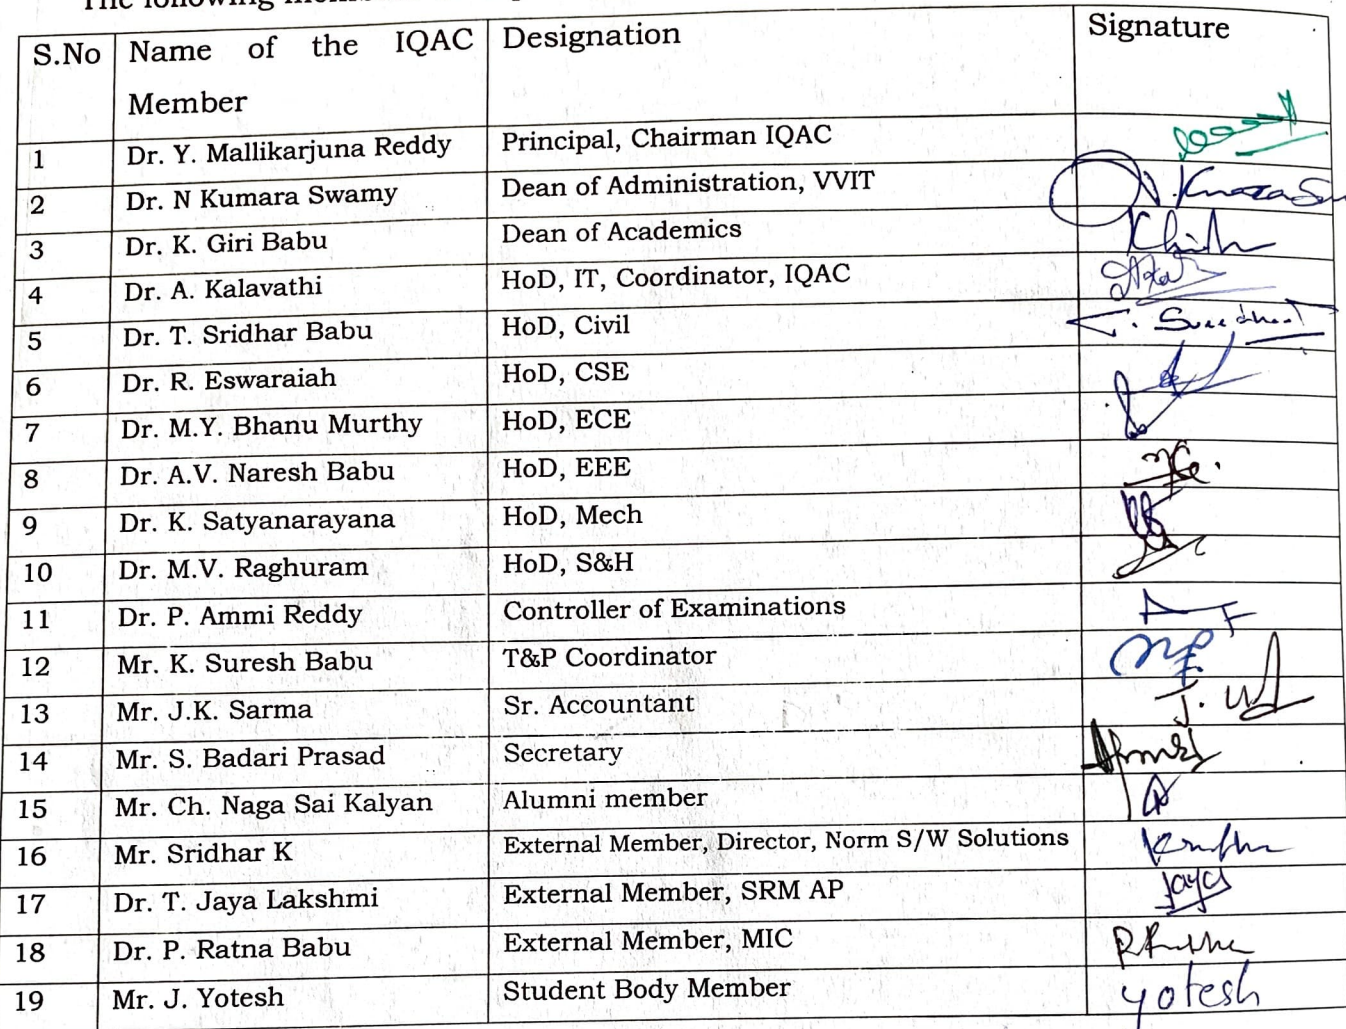 The following
S.No Name of the IQAC Designation Signature
Member
1 Dr. Y. Mallikarjuna Reddy Principal, Chairman IQAC
2 Dr. N Kumara Swamy Dean of Administration, VVIT
3 Dr. K. Giri Babu Dean of Academics
4 Dr. A. Kalavathi HoD, IT, Coordinator, IQAC
5 Dr. T. Sridhar Babu HoD, Civil
6 Dr. R. Eswaraiah HoD, CSE
7 Dr. M.Y. Bhanu Murthy HoD, ECE
8 Dr. A.V. Naresh Babu HoD, EEE
9 Dr. K. Satyanarayana HoD, Mech
10 Dr. M.V. Raghuram HoD, S&H
11 Dr. P. Ammi Reddy Controller of Examinations
12 Mr. K. Suresh Babu T&P Coordinator
13 Mr. J.K. Sarma Sr. Accountant
14 Mr. S. Badari Prasad Secretary
15 Mr. Ch. Naga Sai Kalyan Alumni member
16 Mr. Sridhar K External Member, Director, Norm S/W Solutions
17 Dr. T. Jaya Lakshmi External Member, SRM AP Jaya
18 Dr. P. Ratna Babu External Member, MIC
19 Mr. J. Yotesh Student Body Member yotesh